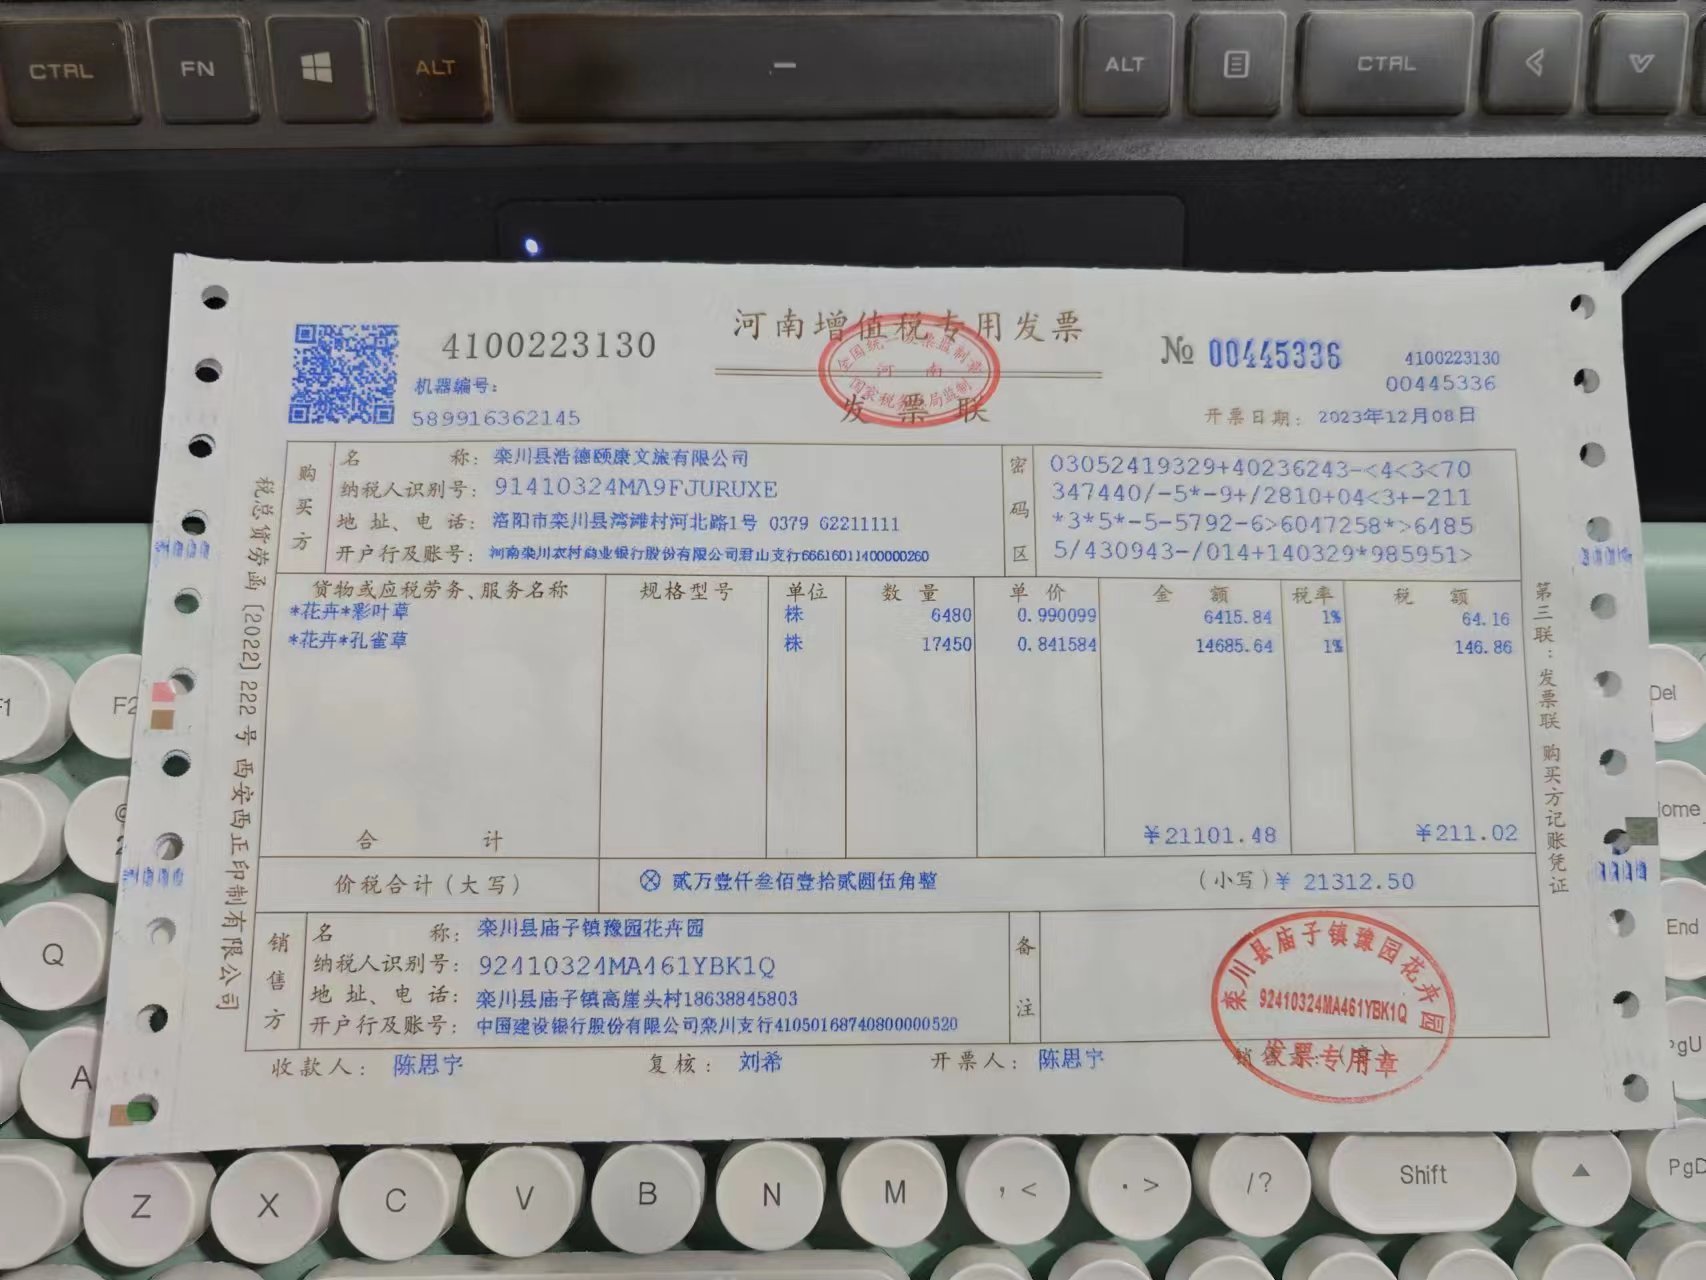 CTRL FN ALT ALT CTRL
河南增值税专用发票
发票联
全国统一发票监制章
河南
国家税务总局监制
4100223130
机器编号:
589916362145
№ 00445336
4100223130
00445336
开票日期: 2023年12月08日
税总货劳函〔2022〕222号 西安西正印制有限公司
购买方
名 称: 栾川县浩德颐康文旅有限公司
纳税人识别号: 91410324MA9FJURUXE
地址、电话: 洛阳市栾川县湾滩村河北路1号 0379 62211111
开户行及账号: 河南栾川农村商业银行股份有限公司君山支行66616011400000260
密码区
03052419329+40236243-<4<3<70
347440/-5*-9+/2810+04<3+-211
*3*5*-5-5792-6>6047258*>6485
5/430943-/014+140329*985951>
货物或应税劳务、服务名称 规格型号 单位 数量 单价 金额 税率 税额
*花卉*彩叶草 株 6480 0.990099 6415.84 1% 64.16
*花卉*孔雀草 株 17450 0.841584 14685.64 1% 146.86
合 计 ¥21101.48 ¥211.02
价税合计(大写) ⊗ 贰万壹仟叁佰壹拾贰圆伍角整 (小写)¥ 21312.50
销售方
名 称: 栾川县庙子镇豫园花卉园
纳税人识别号: 92410324MA461YBK1Q
地址、电话: 栾川县庙子镇高崖头村18638845803
开户行及账号: 中国建设银行股份有限公司栾川支行41050168740800000520
备注
收款人: 陈思宇 复核: 刘希 开票人: 陈思宇 销售方:(章)
栾川县庙子镇豫园花卉园
92410324MA461YBK1Q
发票专用章
第三联:发票联 购买方记账凭证
F1 F2 Del
2
Q End
A
Z X C V B N M , < . > / ? Shift